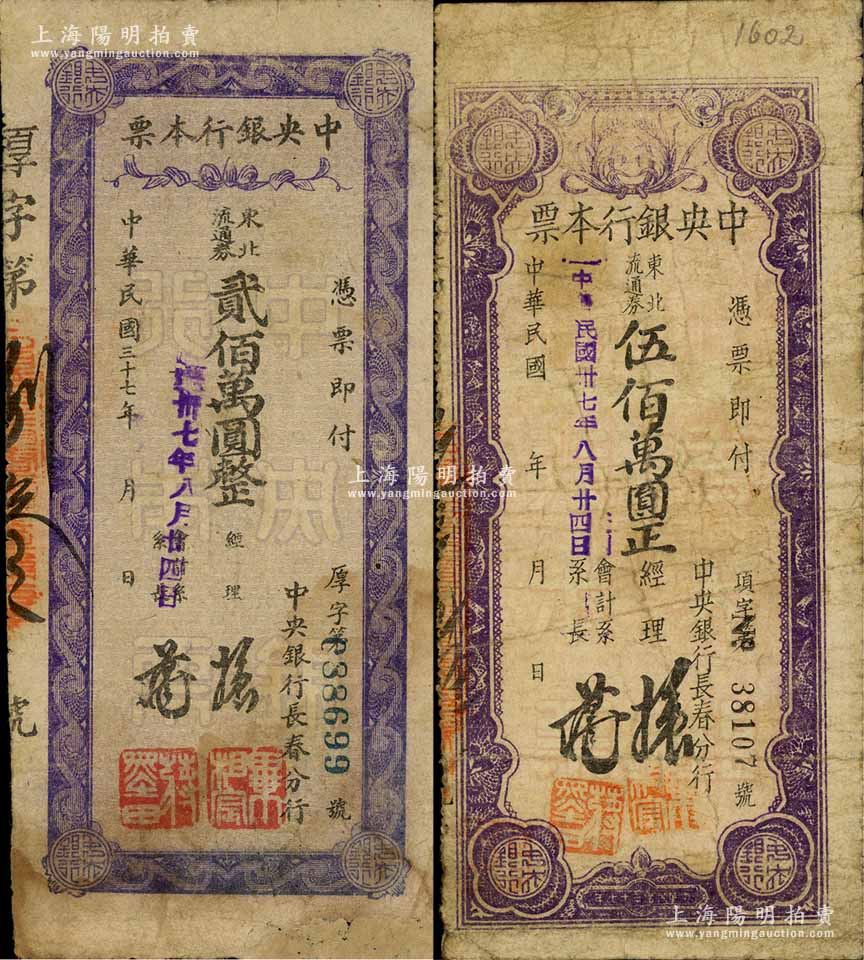 上海陽明拍賣
www.yangmingauction.com
中央銀行本票
憑票即付
東北
流通券
貳佰萬圓整
中華民國三十七年 月 日
卅七年八月廿四日
經理
中央銀行長春分行
厚字第
338699
號
厚字第
號
1602
中央銀行本票
憑票即付
東北
流通券
伍佰萬圓正
民國卅七年八月廿四日
中華民國 年 月 日
經理
會計系
系長
中央銀行長春分行
項字第
38107
號
上海陽明拍賣
www.yangmingauction.com
上海陽明拍賣
www.yangmingauction.com